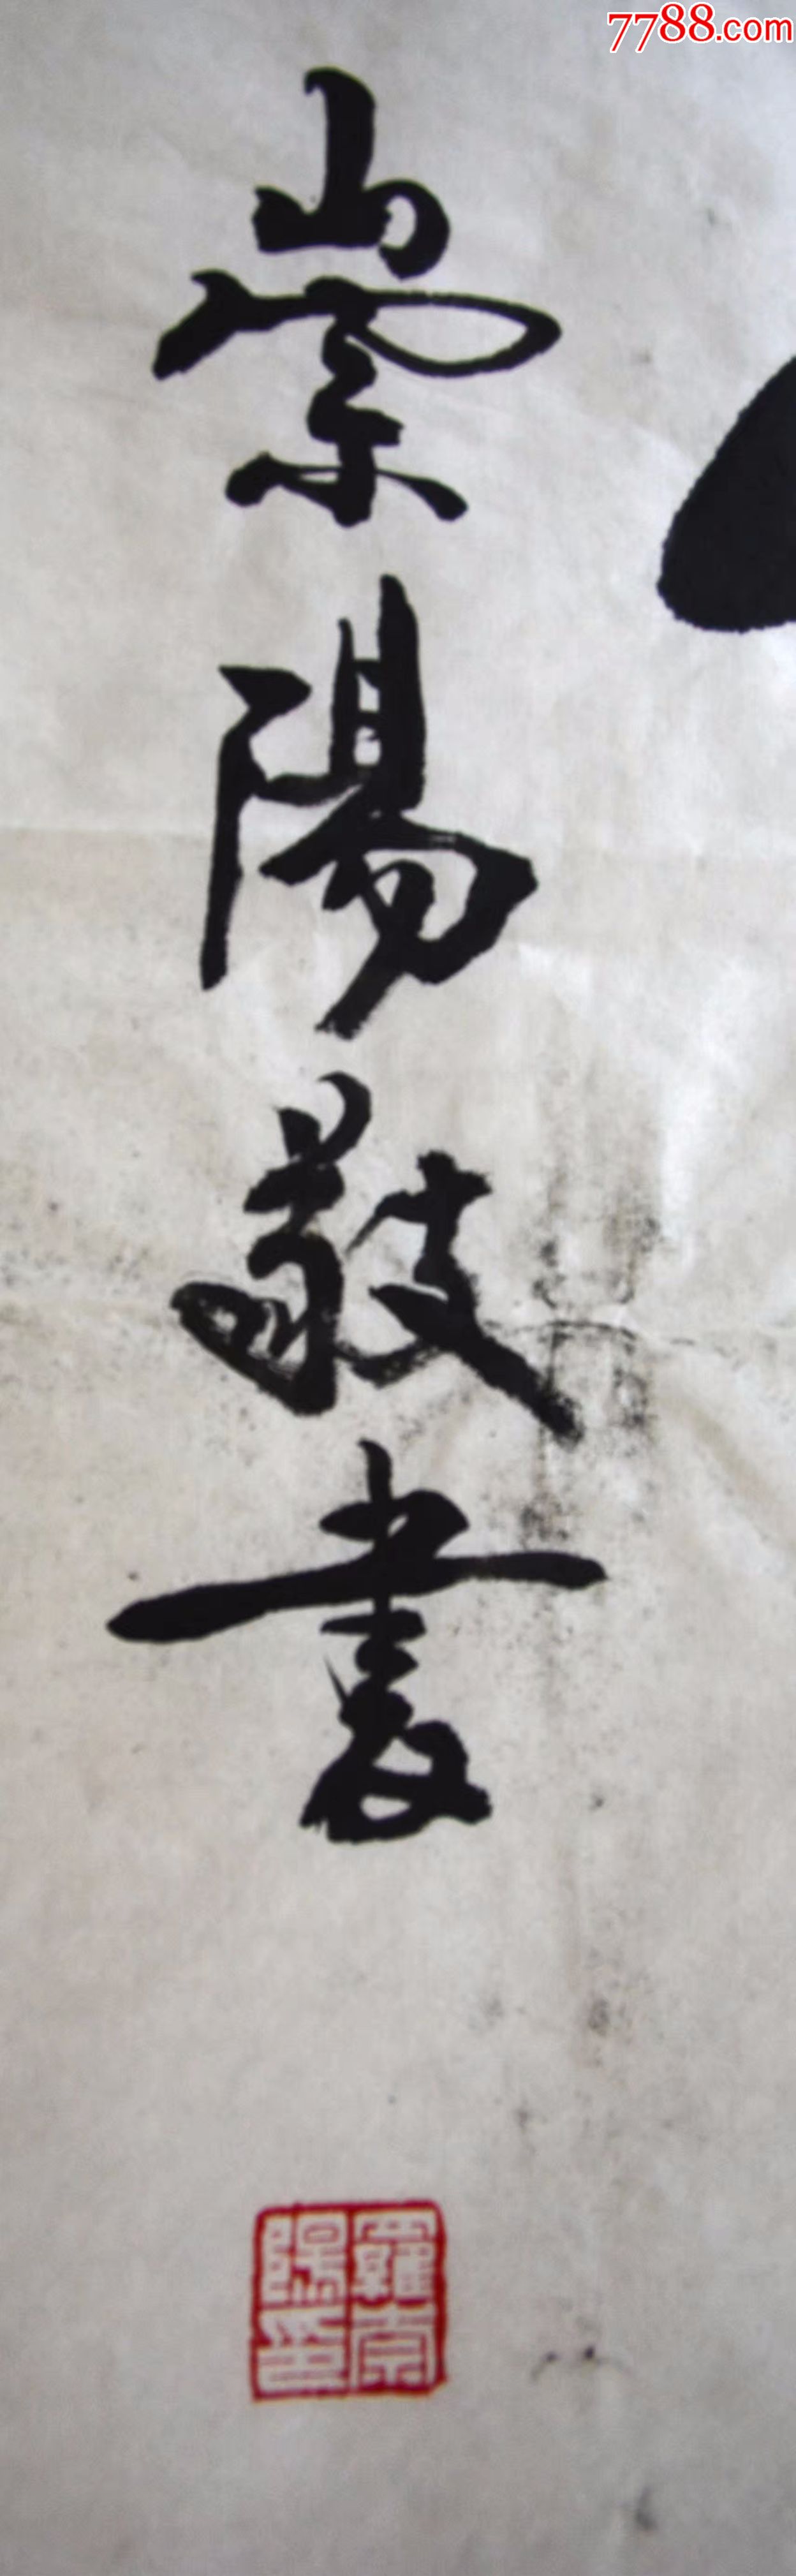 7788.com
崇陽敬書
羅崇
陽印